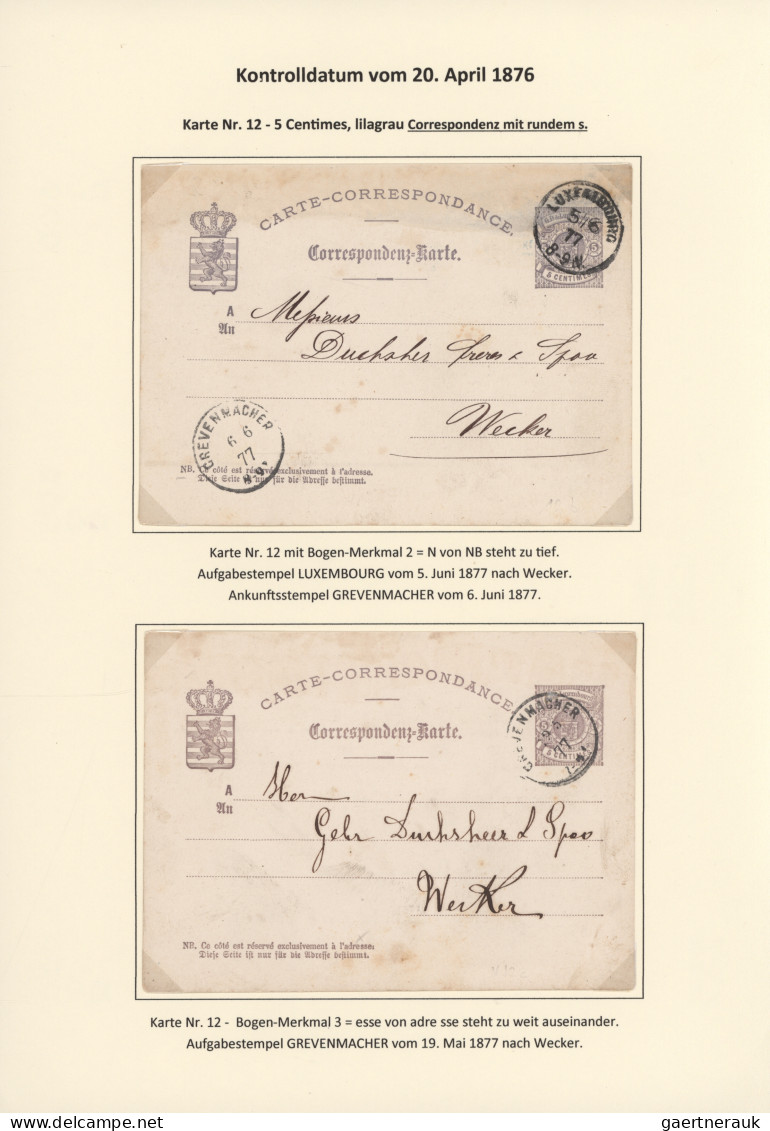 Kontrolldatum vom 20. April 1876
Karte Nr. 12 - 5 Centimes, lilagrau Correspondenz mit rundem s.
CARTE-CORRESPONDANCE.
Correspondenz-Karte.
LUXEMBOURG
5/6
77
8-9N.
5 CENTIMES
A
An
Messieurs
Duchsher frères & Spoo
Wecker
GREVENMACHER
6 6
77
NB. Ce côté est réservé exclusivement à l'adresse.
Diese Seite ist nur für die Adresse bestimmt.
Karte Nr. 12 mit Bogen-Merkmal 2 = N von NB steht zu tief.
Aufgabestempel LUXEMBOURG vom 5. Juni 1877 nach Wecker.
Ankunftsstempel GREVENMACHER vom 6. Juni 1877.
CARTE-CORRESPONDANCE
Correspondenz-Karte.
GREVENMACHER
19 5
77
5 CENTIMES
A
An
Hern
Gebr Duchsheer & Spoo
Wecker
NB. Ce côté est réservé exclusivement à l'adresse:
Diese Seite ist nur für die Adresse bestimmt.
Karte Nr. 12 - Bogen-Merkmal 3 = esse von adre sse steht zu weit auseinander.
Aufgabestempel GREVENMACHER vom 19. Mai 1877 nach Wecker.
gaertnerauk